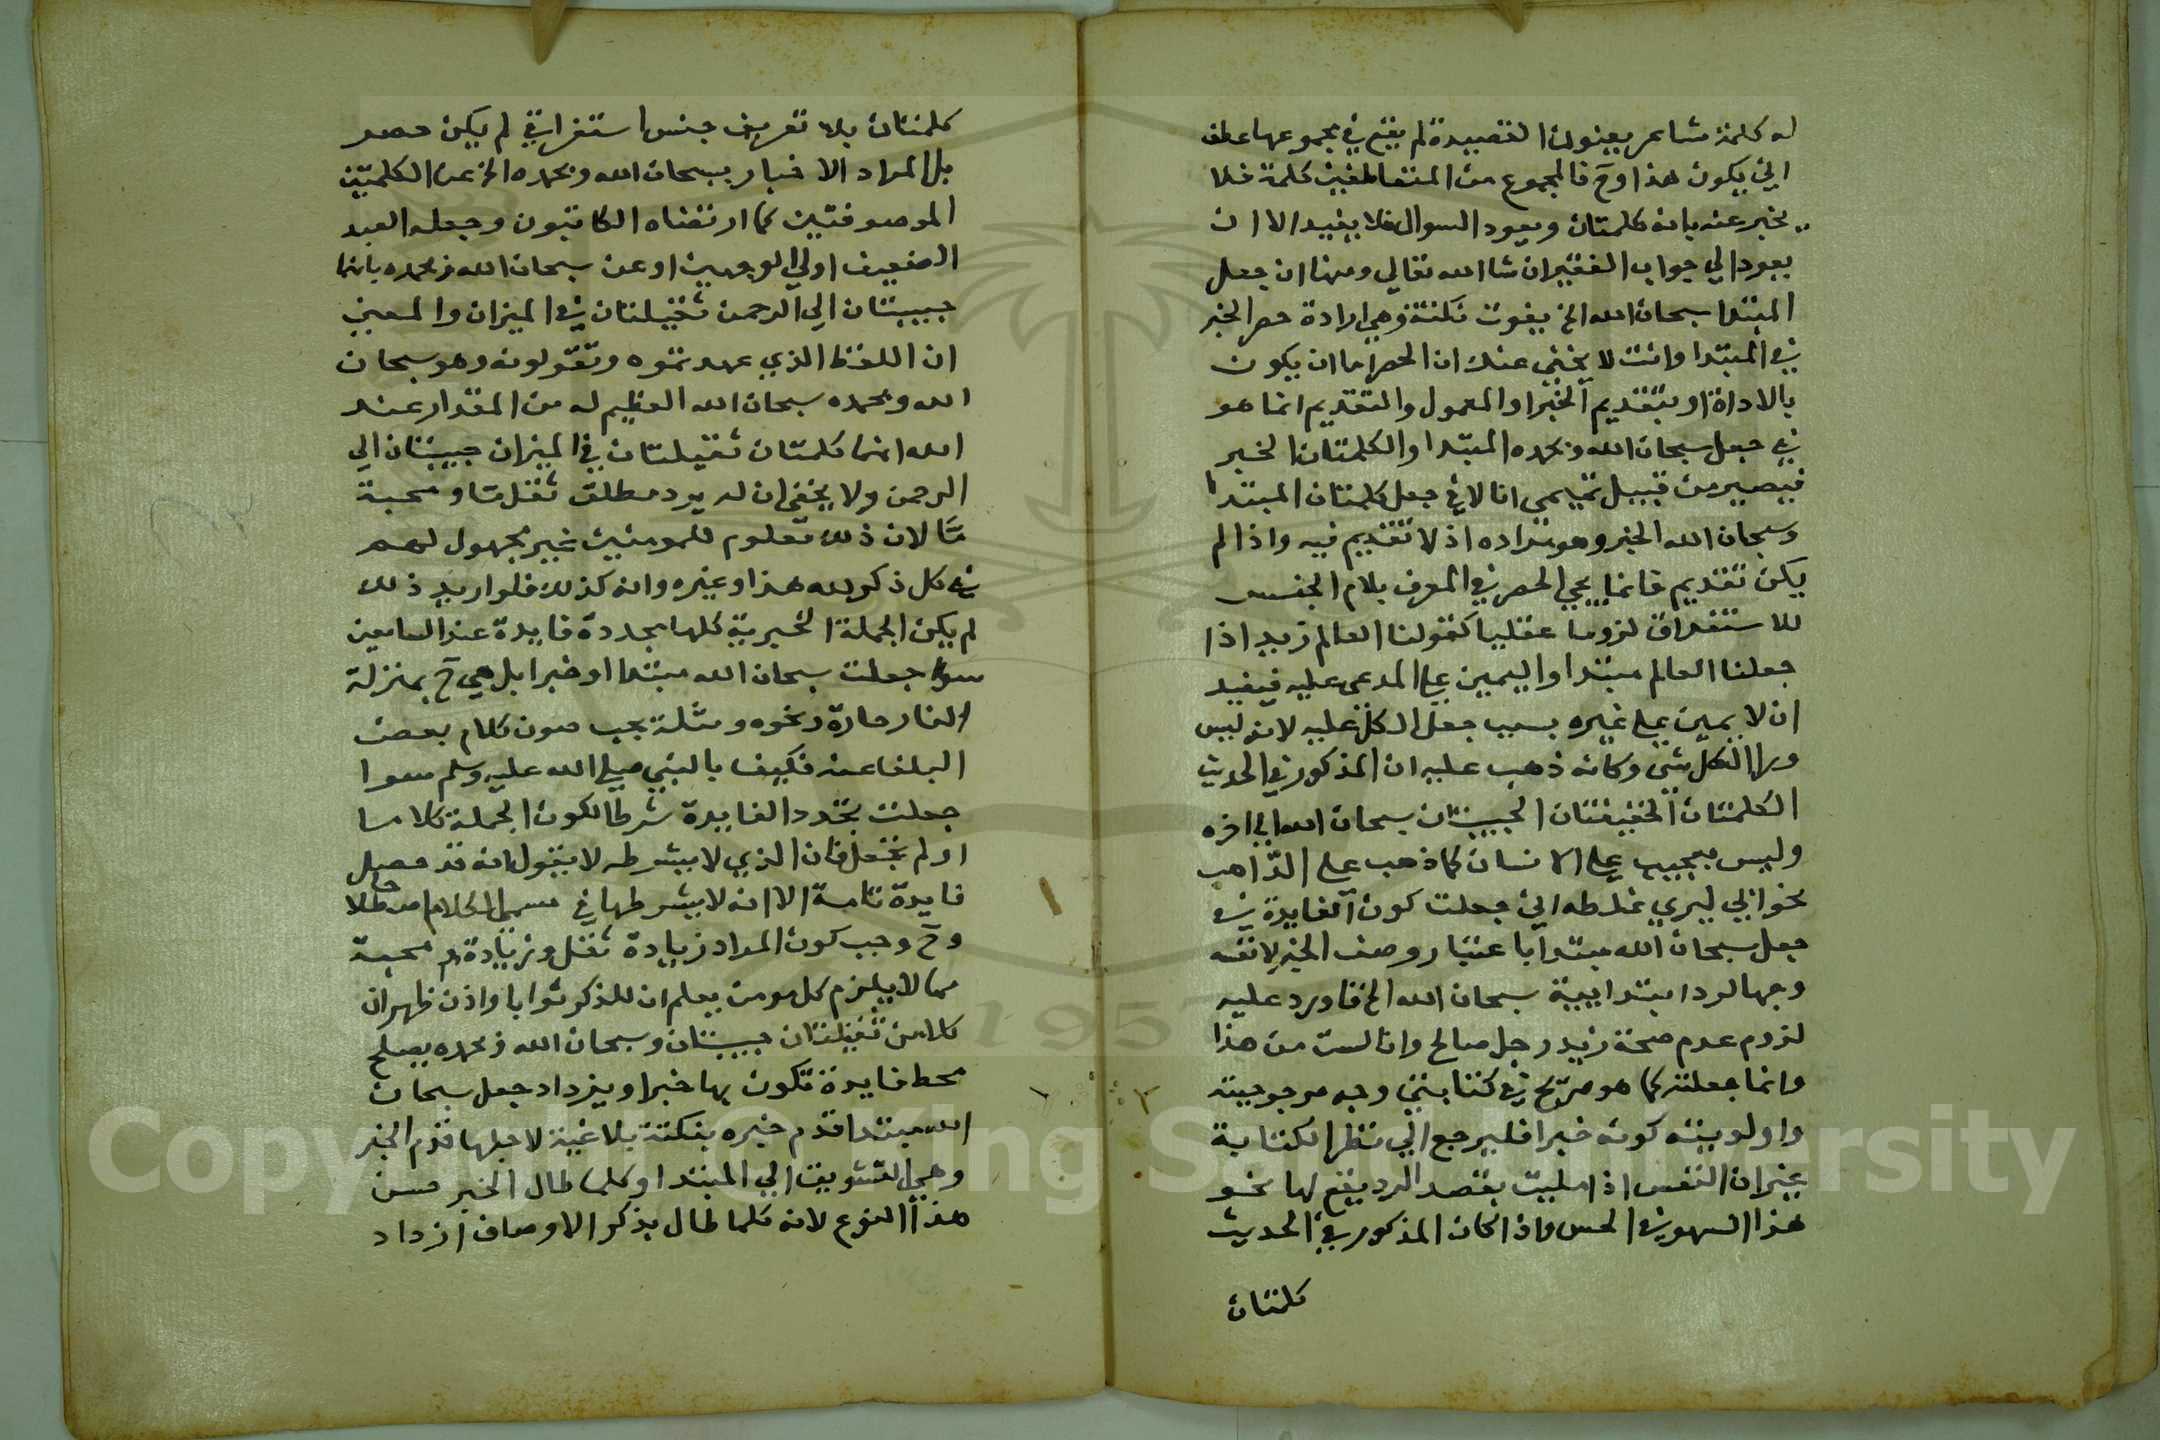 له كلمة شاعر يعنون القصيدة لم يقع في مجموعها عطف
الي يكون هذا وح فالمجموع من المتعاطفين كلمة فلا
يخبر عنه بانه كلمتان ويعود السوال فلا يفيد الا ان
يعود الي جواب الفقير ان شا الله تعالي ومنها ان جعل
المبتدا سبحان الله الخ يفوت نكتة وهي ارادة حصر الخبر
في المبتدا وانت لا يخفي عنك ان الحصر اما ان يكون
بالاداة او بتقديم الخبر او المعمول والتقديم انما هو
في جعل سبحان الله وبحمده المبتدا والكلمتان الخبر
فيصير من قبيل تميمي انا لا في جعل كلمتان المبتدا
وسبحان الله الخبر وهو مراده اذ لا تقديم فيه واذا لم
يكن تقديم فانما يجي الحصر في المعرف بلام الجنس
للاستغراق لزوما عقليا كقولنا العالم زيد اذا
جعلنا العالم مبتدا واليمين علي المدعي عليه فيفيد
ان لا يمين علي غيره بسبب جعل الكل عليه لانه ليس
ورا الكل شي وكانه ذهب عليه ان المذكور في الحديث
الكلمتان الخفيفتان الحبيبتان سبحان الله الي اخره
وليس بعجيب علي الانسان كما ذهب علي الذاهب
نحو ابي ليري غلطه اني جعلت كون الفايدة في
جعل سبحان الله مبتدا باعتبار وصف الخبر لانفسه
وجها لرد ابتدايية سبحان الله الخ فاورد عليه
لزوم عدم صحة زيد رجل صالح وانا لست من هذا
وانما جعلته كما هو صريح في كتابتي وجه مرجوحيته
واولويته كونه خبرا فليرجع الي نظر الكتابة
غير ان النفس اذا مليت بقصد الرد يقع لها نحو
هذا السهو في الحس واذا كان المذكور في الحديث
كلمتان
كلمتان بلا تعريف جنس استغراقي لم يكن حصر
بل المراد الاخبار بسبحان الله وبحمده الخ عن الكلمتين
الموصوفتين كما ارتضاه الكاتبون وجعله العبد
الضعيف اولي الوجهين او عن سبحان الله وبحمده بانهما
حبيبتان الي الرحمن ثقيلتان في الميزان والمعني
ان اللفظ الذي عهدتموه وتقولونه وهو سبحان
الله وبحمده سبحان الله العظيم له من المقدار عند
الله انهما كلمتان ثقيلتان في الميزان حبيبتان الي
الرحمن ولا يخفي ان لم يرد مطلق ثقل ما ومحبة
ما لان ذلك معلوم للمومنين غير مجهول لهم
في كل ذكر لله هذا وغيره وانه كذلك فلو اريد ذلك
لم يكن الجملة الخبرية كلها مجددة فايدة عند السامعين
سوا جعلت سبحان الله مبتدا او خبرا بل هي ح بمنزلة
النار حارة ونحوه ومثله يجب صون كلام بعض
البلغا عنه فكيف بالنبي صلي الله عليه وسلم سوا
جعلت تجدد الفايدة شرطا لكون الجملة كلاما
او لم تجعل فان الذي لا يشرطه لا يقول انه قد حصل
فايدة تامة الا انه لا يشرطها في مسمي الكلام اصطلاحا
وح وجب كون المراد زيادة ثقل وزيادة محبة
مما لا يلزم كل مومن يعلم ان للذكر ثوابا واذن ظهر ان
كلا من ثقيلتان حبيبتان وسبحان الله وبحمده يصلح
محط فايدة تكون بها خبرا ويزداد جعل سبحان
الله مبتدا قدم خبره بنكتة بلاغية لاجلها قدم الخبر
وهي التشويق الي المبتدا وكلما طال الخبر حسن
هذا النوع لانه كلما طال بذكر الاوصاف ازداد